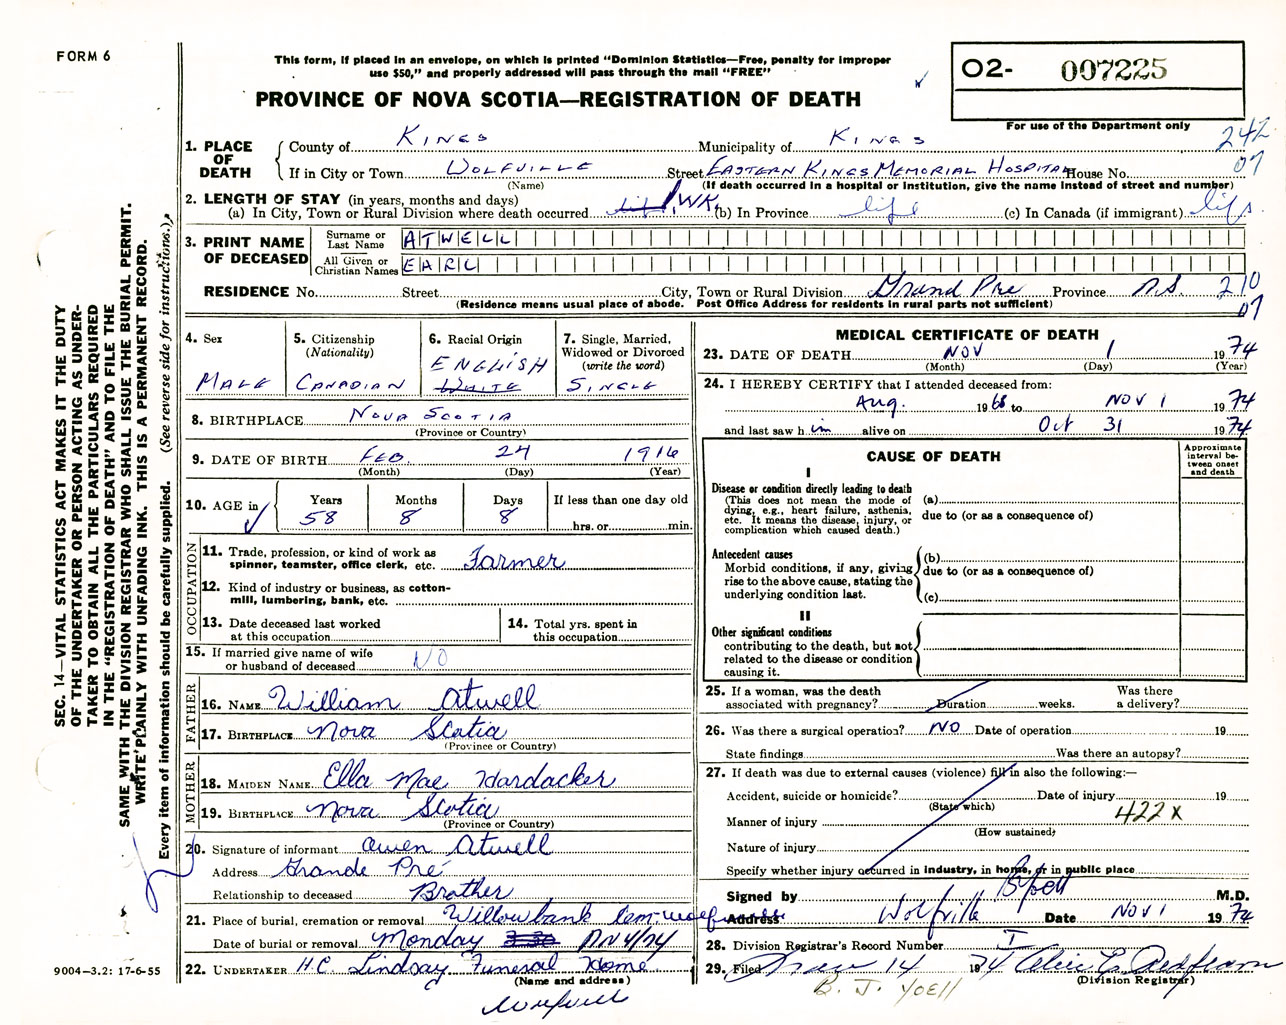 FORM 6
This form, if placed in an envelope, on which is printed “Dominion Statistics—Free, penalty for improper
use $50,” and properly addressed will pass through the mail “FREE”
PROVINCE OF NOVA SCOTIA—REGISTRATION OF DEATH
O2- 007225
For use of the Department only
242
07
1. PLACE OF DEATH
County of KINGS Municipality of KINGS
If in City or Town WOLFVILLE Street EASTERN KINGS MEMORIAL HOSPITAL House No.
(Name) (If death occurred in a hospital or institution, give the name instead of street and number)
2. LENGTH OF STAY (in years, months and days)
(a) In City, Town or Rural Division where death occurred life 1 WK. (b) In Province life (c) In Canada (if immigrant) life
3. PRINT NAME OF DECEASED
Surname or Last Name ATWELL
All Given or Christian Names EARL
RESIDENCE No. Street City, Town or Rural Division Grand Pre Province N.S. 210
07
(Residence means usual place of abode. Post Office Address for residents in rural parts not sufficient)
4. Sex MALE
5. Citizenship (Nationality) CANADIAN
6. Racial Origin ENGLISH WHITE
7. Single, Married, Widowed or Divorced (write the word) SINGLE
8. BIRTHPLACE NOVA SCOTIA
(Province or Country)
9. DATE OF BIRTH FEB. 24 1916
(Month) (Day) (Year)
10. AGE in Years 58 Months 8 Days 8 If less than one day old hrs. or min.
OCCUPATION
11. Trade, profession, or kind of work as spinner, teamster, office clerk, etc. Farmer
12. Kind of industry or business, as cotton-mill, lumbering, bank, etc.
13. Date deceased last worked at this occupation
14. Total yrs. spent in this occupation
15. If married give name of wife or husband of deceased NO
FATHER
16. NAME William Atwell
17. BIRTHPLACE Nova Scotia
(Province or Country)
MOTHER
18. MAIDEN NAME Ella Mae Hardacker
19. BIRTHPLACE Nova Scotia
(Province or Country)
20. Signature of informant Owen Atwell
Address Grande Pré
Relationship to deceased Brother
21. Place of burial, cremation or removal Willowbank Cem-Wolfville
Date of burial or removal Monday Nov 4/74
22. UNDERTAKER H.C. Lindsay Funeral Home
(Name and address)
Wolfville
MEDICAL CERTIFICATE OF DEATH
23. DATE OF DEATH NOV 1 1974
(Month) (Day) (Year)
24. I HEREBY CERTIFY that I attended deceased from:
Aug. 1968 to NOV 1 1974
and last saw h im alive on Oct 31 1974
CAUSE OF DEATH
Approximate interval between onset and death
I
Disease or condition directly leading to death
(This does not mean the mode of dying, e.g., heart failure, asthenia, etc. It means the disease, injury, or complication which caused death.)
(a)
due to (or as a consequence of)
Antecedent causes
Morbid conditions, if any, giving rise to the above cause, stating the underlying condition last.
(b)
due to (or as a consequence of)
(c)
II
Other significant conditions
contributing to the death, but not related to the disease or condition causing it.
25. If a woman, was the death associated with pregnancy? Duration weeks. Was there a delivery?
26. Was there a surgical operation? NO Date of operation 19
State findings Was there an autopsy?
27. If death was due to external causes (violence) fill in also the following:—
Accident, suicide or homicide? Date of injury 19
(State which)
Manner of injury 422X
(How sustained)
Nature of injury
Specify whether injury occurred in industry, in home, or in public place
Signed by M.D.
Address Wolfville Date NOV 1 1974
28. Division Registrar's Record Number I
29. Filed Nov 14 1974
(Division Registrar)
B. J. YOELL
SEC. 14—VITAL STATISTICS ACT MAKES IT THE DUTY
OF THE UNDERTAKER OR PERSON ACTING AS UNDER-
TAKER TO OBTAIN ALL THE PARTICULARS REQUIRED
IN THE “REGISTRATION OF DEATH” AND TO FILE THE
SAME WITH THE DIVISION REGISTRAR WHO SHALL ISSUE THE BURIAL PERMIT.
WRITE PLAINLY WITH UNFADING INK. THIS IS A PERMANENT RECORD.
Every item of information should be carefully supplied. (See reverse side for instructions.)
9004—3.2: 17-6-55